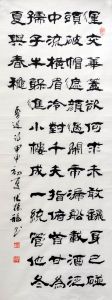 運交華蓋欲何求未敢翻身已碰
頭破帽遮顏過鬧市漏船載酒泛
中流橫眉冷對千夫指俯首甘為
孺子牛躲進小樓成一統管他冬
夏與春秋
魯迅詩甲申初夏